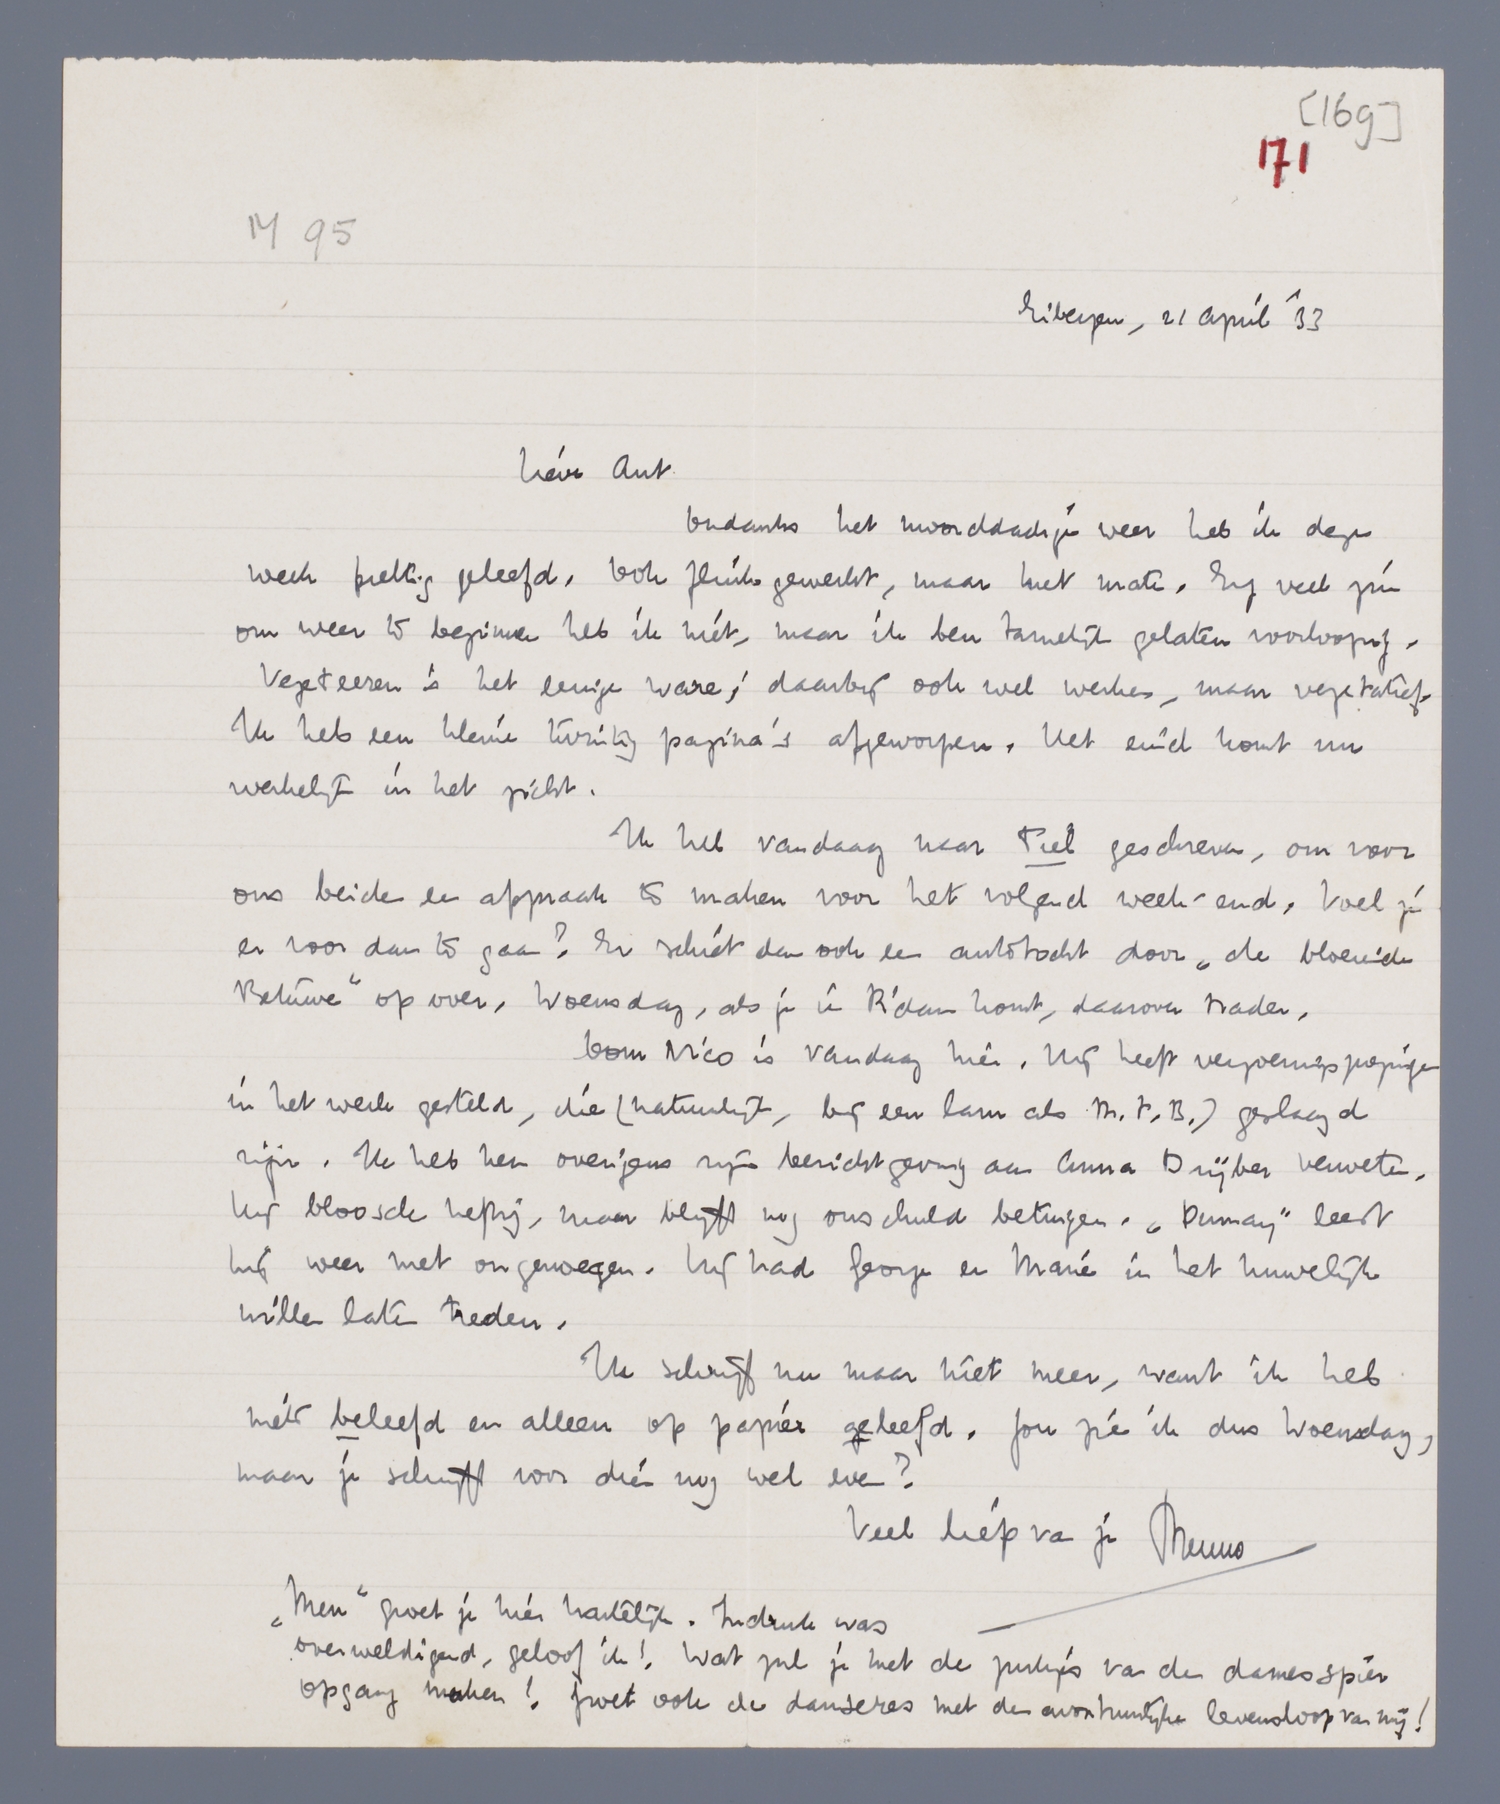 [169]
171
M 95
Eibergen, 21 April '33
Lieve Ant
Ondanks het moorddadige weer heb ik deze
week prettig geleefd. Ook flink gewerkt, maar met mate. Erg veel zin
om weer te beginnen heb ik niet, maar ik ben tamelijk gelaten voorloopig.
Vegeteeren is het eenige ware; daarbij ook wel werken, maar vegetatief.
Ik heb een kleine twintig pagina's afgeworpen. Het eind komt nu
werkelijk in het zicht.
Ik heb vandaag naar Tiel geschreven, om voor
ons beiden een afspraak te maken voor het volgend week-end. Voel je
er voor dan te gaan? Er schiet dan ook een autotocht door „de bloeiende
Betuwe" op over. Woensdag, als je in R'dam komt, daarover nader.
Oom Nico is vandaag hier. Hij heeft verzoeningspogingen
in het werk gesteld, die (natuurlijk, bij een lam als M.t.B.) geslaagd
zijn. Ik heb hem overigens zijn berichtgeving aan Anna Drijber verweten.
Hij bloosde heftig, maar blijft nog onschuld betuigen. „Dumay" leest
hij weer met ongenoegen. Hij had George en Marie in het huwelijk
willen laten treden.
Ik schrijf nu maar niet meer, want ik heb
niets beleefd en alleen op papier geleefd. Jou zie ik dus Woensdag,
maar je schrijft voor dien nog wel even?
Veel liefs van je Menno
„Men" groet je hier hartelijk. Indruk was
overweldigend, geloof ik! Wat zul je met de van den damesspier
opgang maken! Groet ook de danseres met den avontuurlijken levensloop van mij!